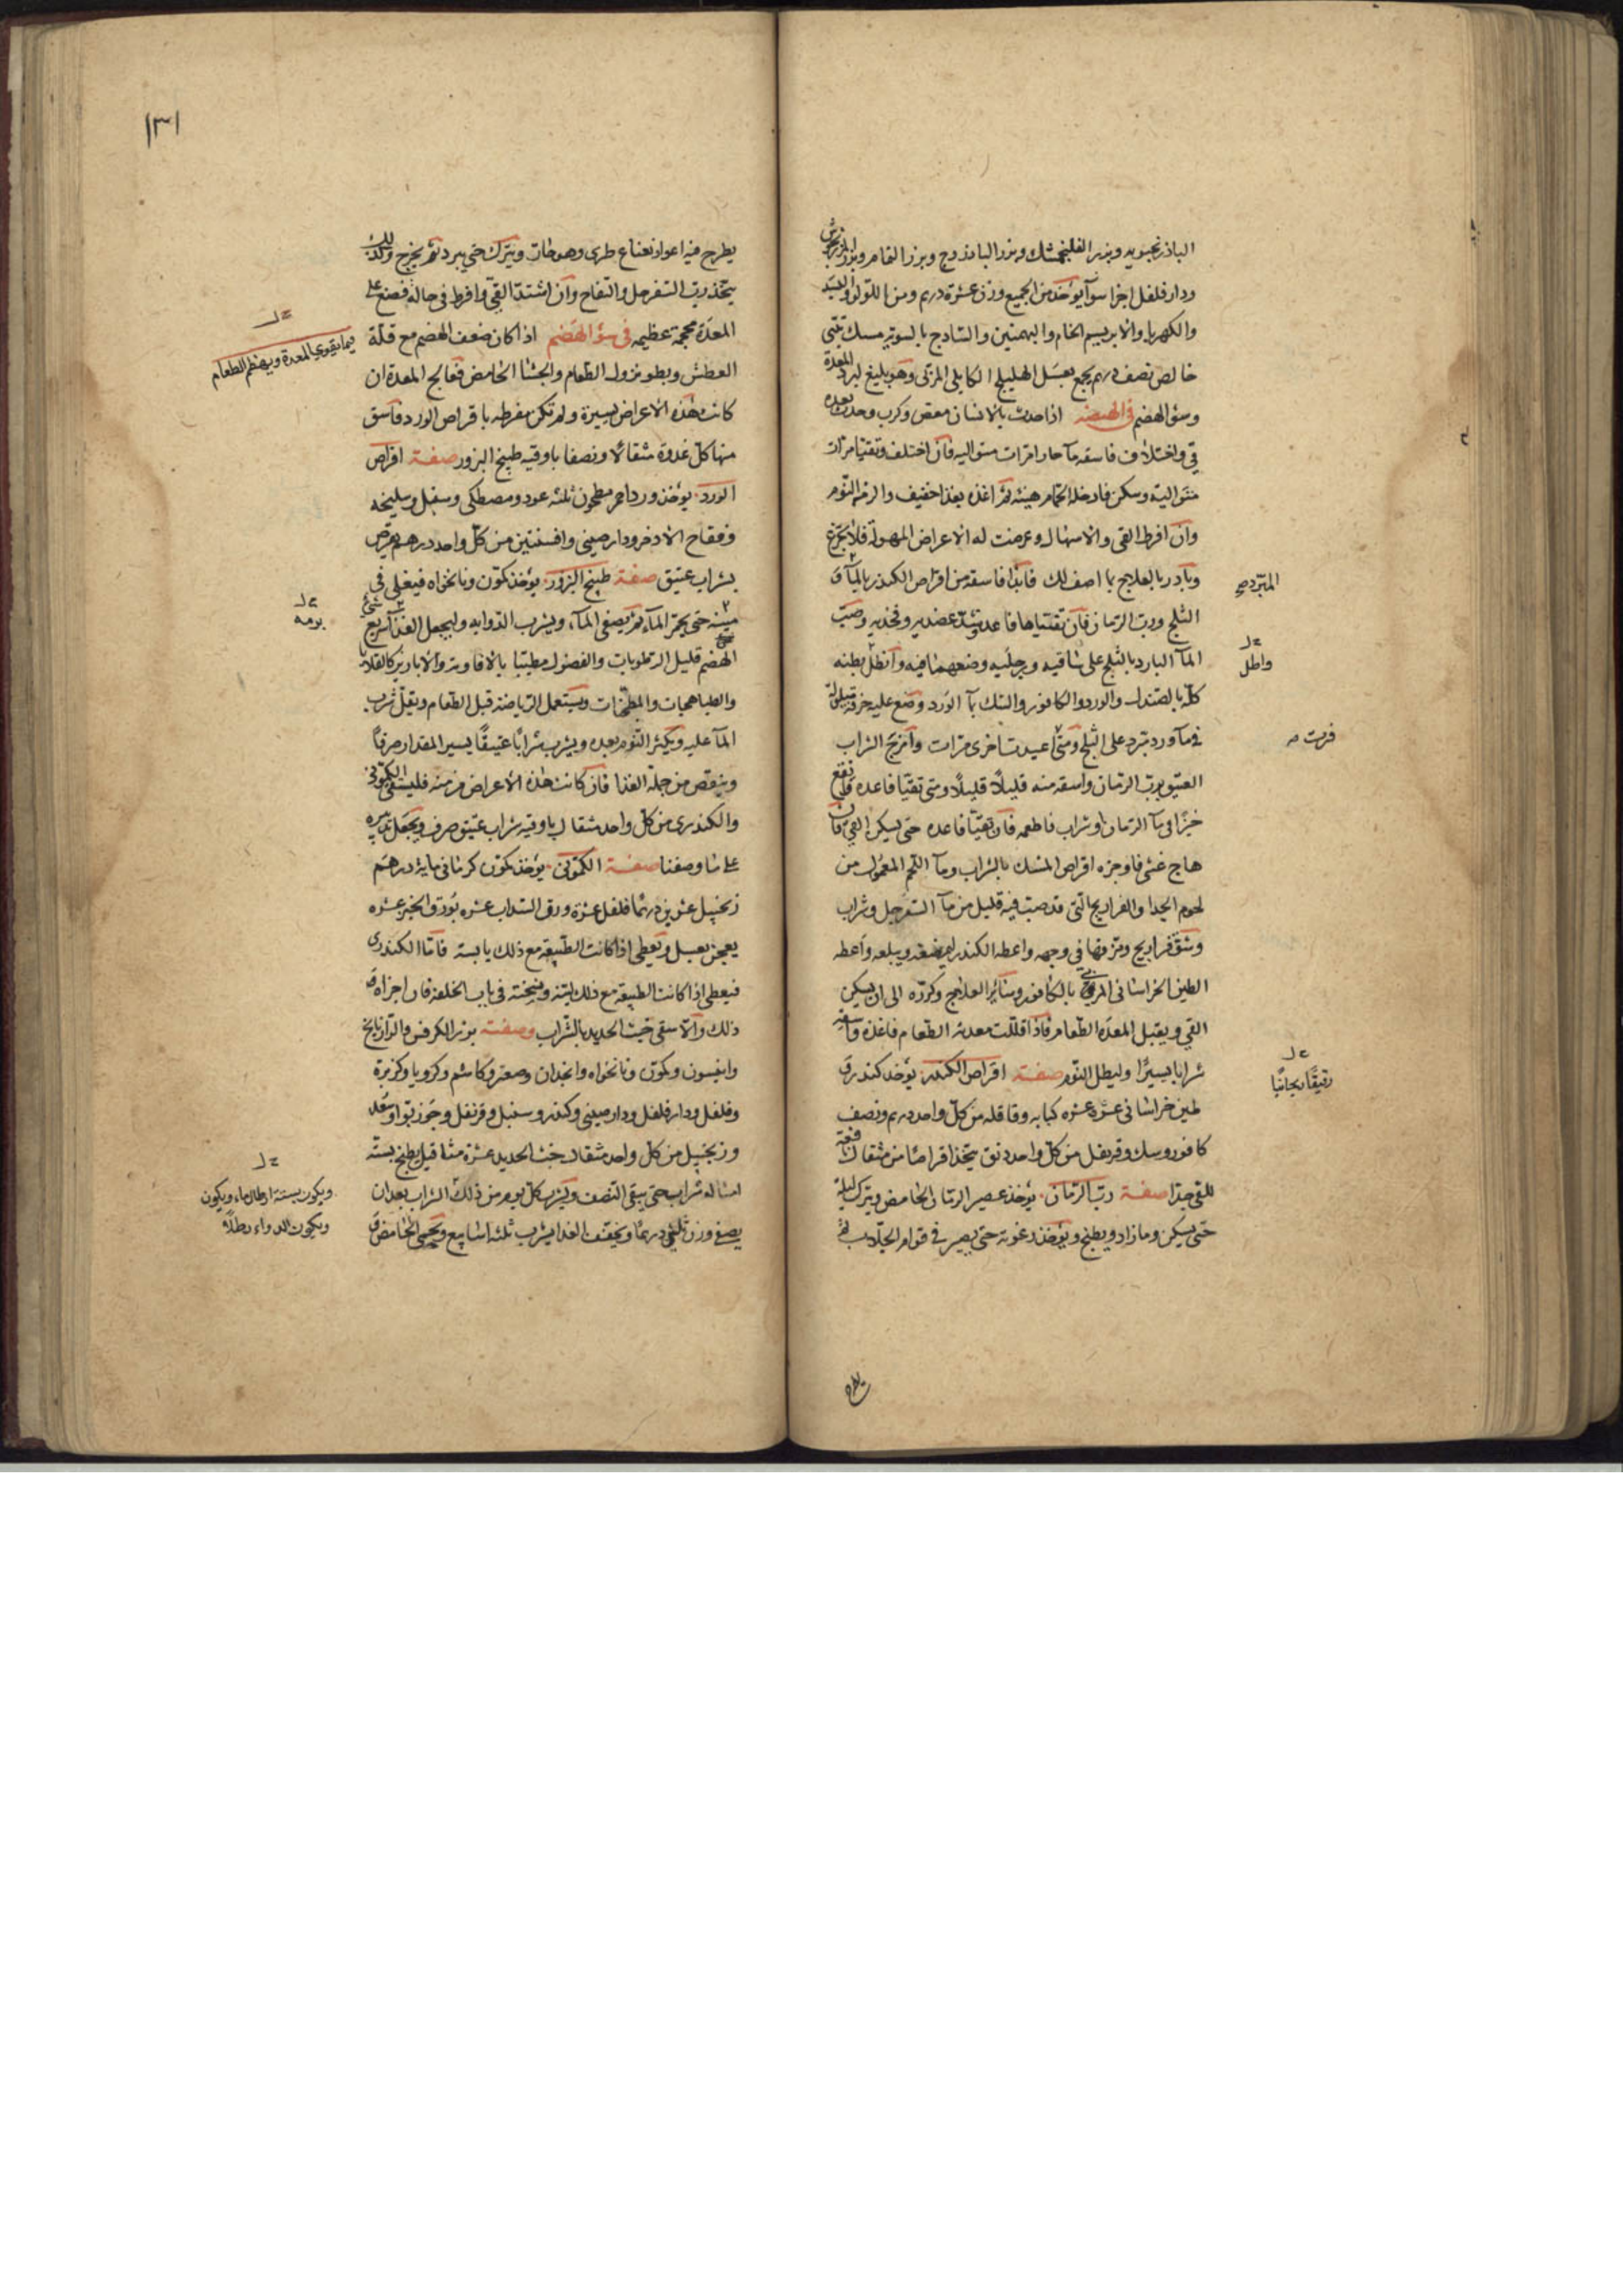 الباذرنجبويه وبزر الفلنجمشك وبزر الباذروج وبزر النمام وبزر المرزنجوش
ودار فلفل اجزا سوآ يؤخذ من الجميع وزن عشرة درهم ومن اللولو والبسد
والكهربا والابريسم الخام والبهمنين والساذج بالسويه مسك تبتي
خالص نصف درهم يجمع بعسل الهليلج الكابلي المربى وهو بليغ لبرد المعدة
وسؤ الهضم في الهيضه اذا حدث بالانسان مغص وكرب وحدث بعده
قي واختلاف فاسقه مآ حار امرات متواليه فان اختلف وتقيا مرات
متواليه وسكن فادخله الحمام هنيئه ثم اغذه بغذا خفيف والزمه النوم
وان افرط القي والاسهال وعرضت له الاعراض المهولة فلا تجزع
وبادر بالعلاج بما اصف لك فابدا فاسقه من اقراص الكندر بالمآ
المبرد صح
الثلج ورب الرمان فان تقياها فاعد وشد عضديه وفخذيه وصب
المآ البارد بالثلج على ساقيه ورجليه وضعهما فيه واطل بطنه
واطل
كله بالصندل والورد والكافور والسك بمآ الورد وضع عليه خرقه مبلولة
في مآ ورد مبرد على الثلج ومتى اعيدت اخرى مرات وامزج الشراب
فرت
العتيق برب الرمان واسقه منه قليلاً قليلاً ومتى تقيا فاعده وانقع
خبزا في مآ الرمان او شراب فاطعمه فان تقيا فاعده حتى يسكن القي فان
هاج غشي فاوجره اقراص المسك بالشراب ومآ اللحم المعمول من
لحوم الجدا والفراريج التي قد صب فيه قليل من مآ السفرجل وشراب
وشق فراريج ومزقها في وجهه واعطه الكندر ليمضغه ويبلعه واعطه
الطين الخراساني المربى بالكافور وسائر العلاج وكرره الى ان يسكن
القي ويقبل المعده الطعام فاذا قبلت معدته الطعام فاغذه واسقه
شرابا يسيرا وليطل النوم صفة اقراص الكندر يؤخذ كندر
رقيقا ريحانيا
طين خراساني عشرة عشره كبابه وقاقله من كل واحد درهم ونصف
كافور وسك وقرنفل من كل واحد دنق يتخذ اقراصا من مثقال نافعة
للقي جدا صفة رب الرمان يؤخذ عصير الرمان الحامض ويترك ليلة
حتى يسكن وما زاد ويطبخ ويؤخذ رغوته حتى يصير في قوام الجلاب ثم
يطرح
١٣١
يطرح فيه اعواد نعناع طري وهو حار ويترك حتى يبرد ثم يخرج وكذلك
يتخذ رب السفرجل والتفاح وان اشتد القي وافرط في حاله فضع على
المعدة محجمة عظيمه في سؤ الهضم اذا كان ضعف الهضم مع قلة
فيما يقوي المعدة ويهضم الطعام
العطش وبطو نزول الطعام والجشا الحامض فعالج المعدة ان
كانت هذه الاعراض يسيرة ولم تكن مفرطه باقراص الورد فاسق
منها كل غدوة مثقالا ونصفا باوقيه طبيخ البزور صفة اقراص
الورد يؤخذ ورد احمر مطحون ثلثه عود ومصطكى وسنبل وسليخه
وفقاح الاذخر ودارصيني وافسنتين من كل واحد درهم يقرص
بشراب عتيق صفة طبيخ البزور يؤخذ كمون ونانخواه فيغلى في
برمه
حتى يحمر المآء ثم يصفى المآء ويشرب الدوا به وليجعل الغذآ سريع
الهضم قليل الرطوبات والفضول مطيبا بالافاويه والابازير كالقلايا
والطباهجات والمطجنات ويستعمل الرياضة قبل الطعام ويقل شرب
المآ عليه ويكثر النوم بعده ويشرب شرابا عتيقا يسير المقدار صرفاً
وينقص من جملة الغذا فان كانت هذه الاعراض مزمنه فليسقى الكموني
والكندري من كل واحد مثقال باوقيه شراب عتيق صرف ويجعل تدبيره
على ما وصفنا صفة الكموني يؤخذ كمون كرماني مايه درهم
زنجبيل عشرين درهما فلفل عشرة ورق السداب عشره بورق الخبز عشره
يعجن بعسل ويعطى اذا كانت الطبيعه مع ذلك يابسه فاما الكندري
فيعطى اذا كانت الطبيعه مع ذلك لينه ونسخته في باب الخلفه فان اجزاه
ذلك والا سقي خبث الحديد بالشراب وصفته بزر الكرفس والرازيانج
وانيسون وكمون ونانخواه وانجدان وصعتر وكاشم وكرويا وكزبرة
وفلفل ودار فلفل ودارصيني وكندر وسنبل وقرنفل وجوزبوا وسعد
وزنجبيل من كل واحد مثقال خبث الحديد عشرة مثاقيل يطبخ بستة
ويكون بستة ارطال ماء ويكون
ويكون الدواء رطلاً
امثاله شراب حتى يبقى النصف ويشرب كل يوم من ذلك الشراب بعد ان
يصفى وزن ثلثي درهما ويخفف الغدا يشرب ثلثه اسابيع ويحمى الحامض